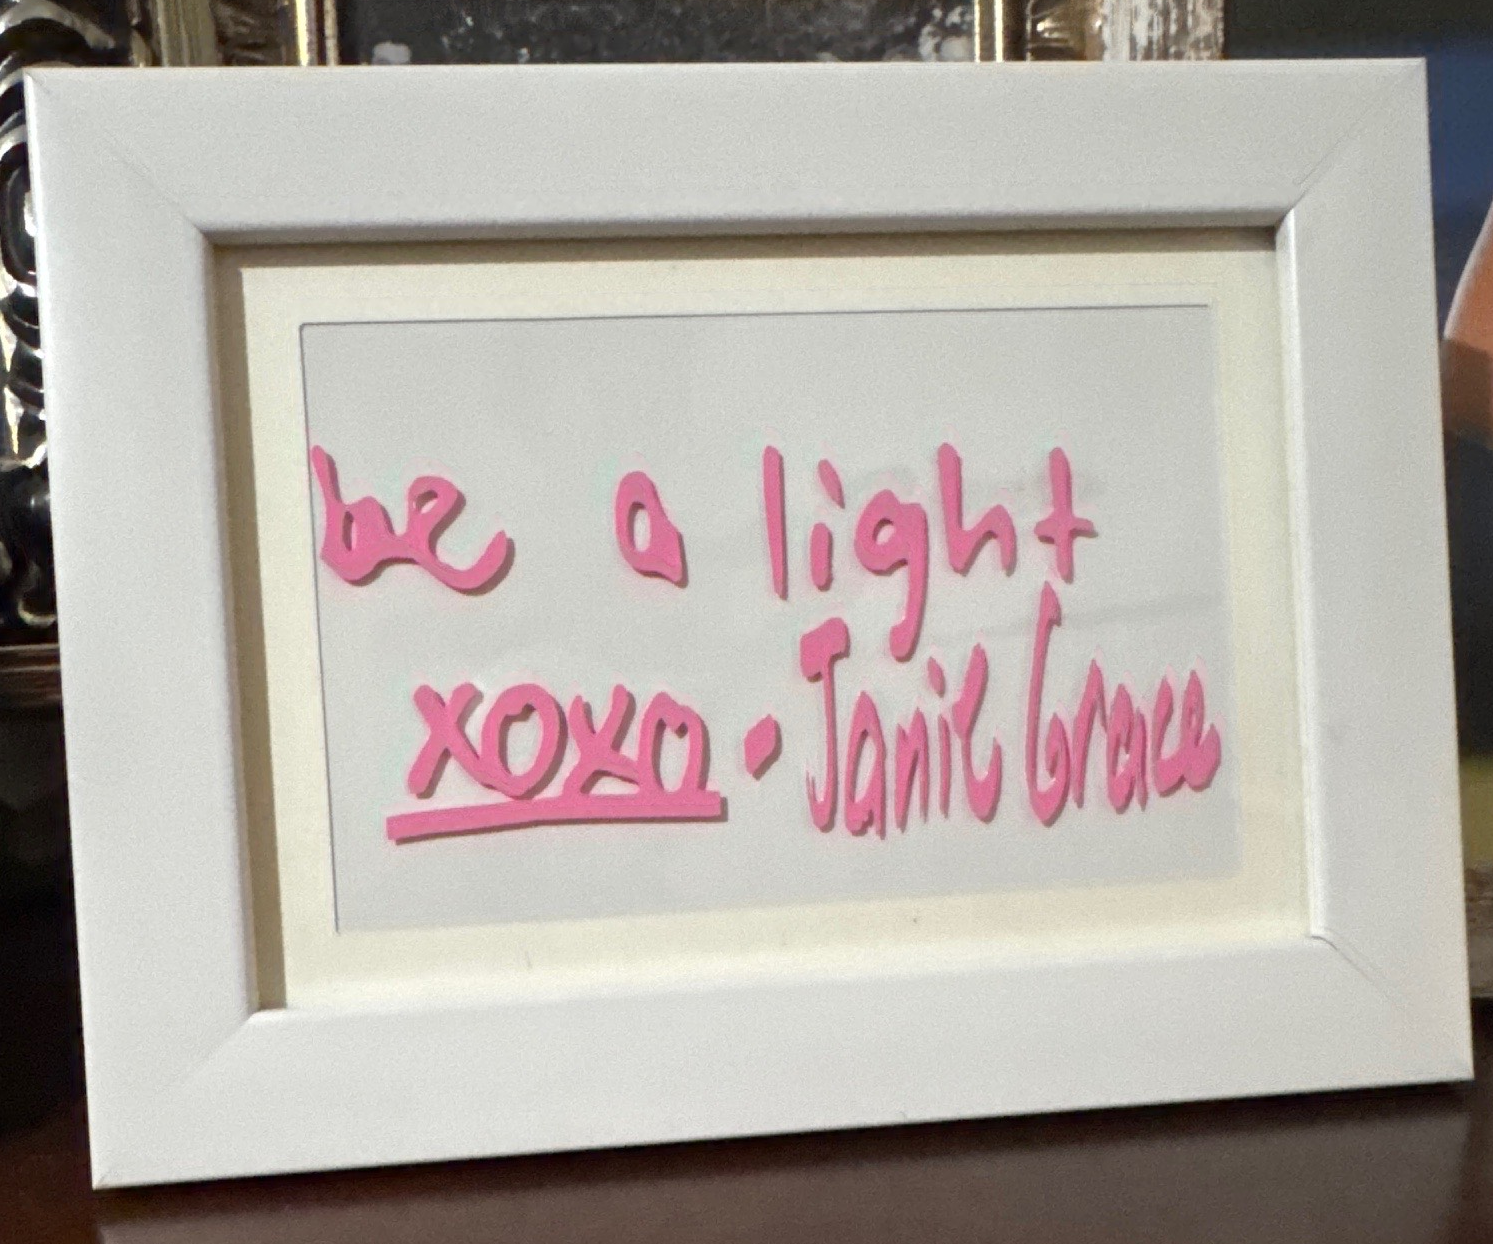 be a light
xoxo • Janie Grace